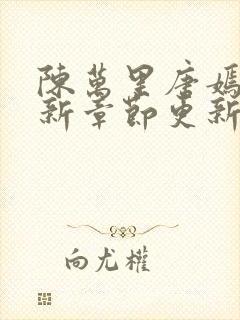 陳萬里唐嫣
新章節更新
向尤權